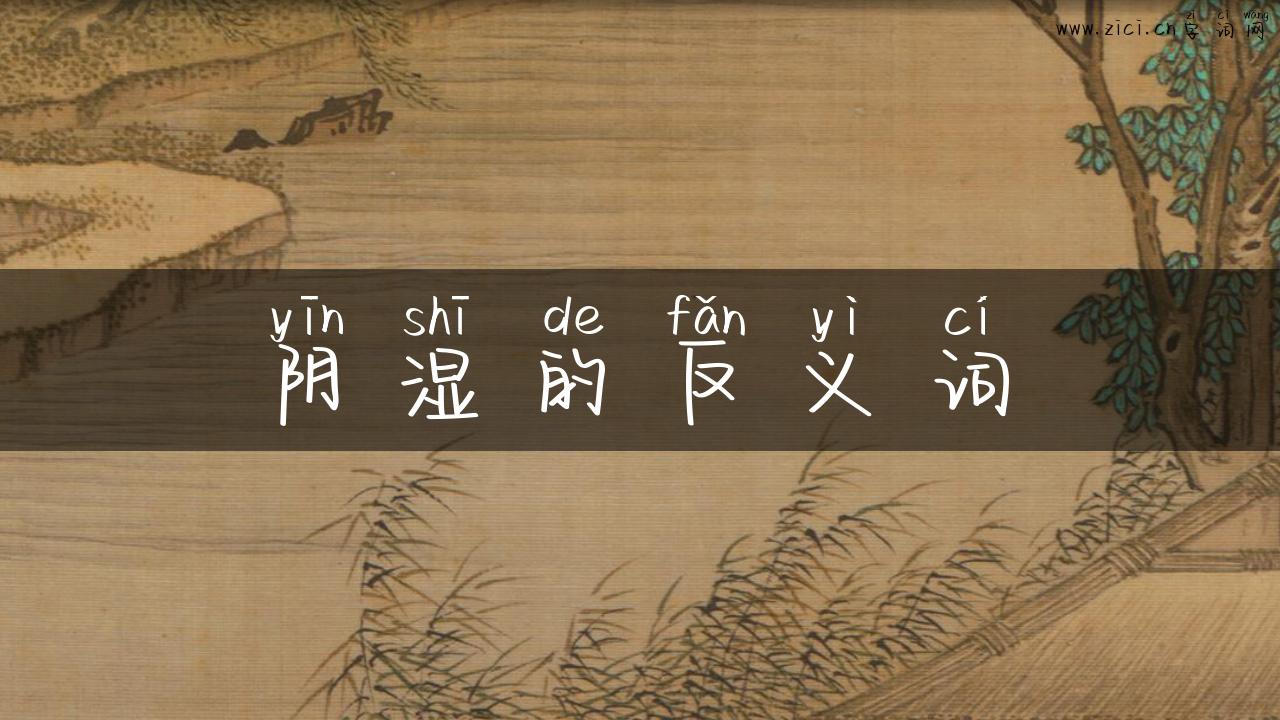 zì cí wǎng
www.zici.cn字词网
yīn shī de fǎn yì cí
阴湿的反义词